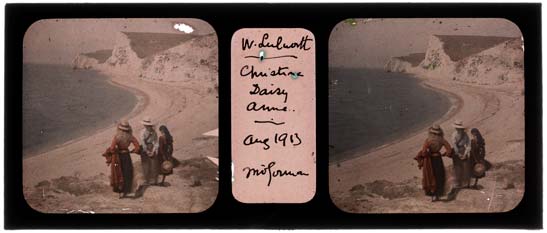 W. Lulworth
Christina
Daisy
Anne.
Aug 1913